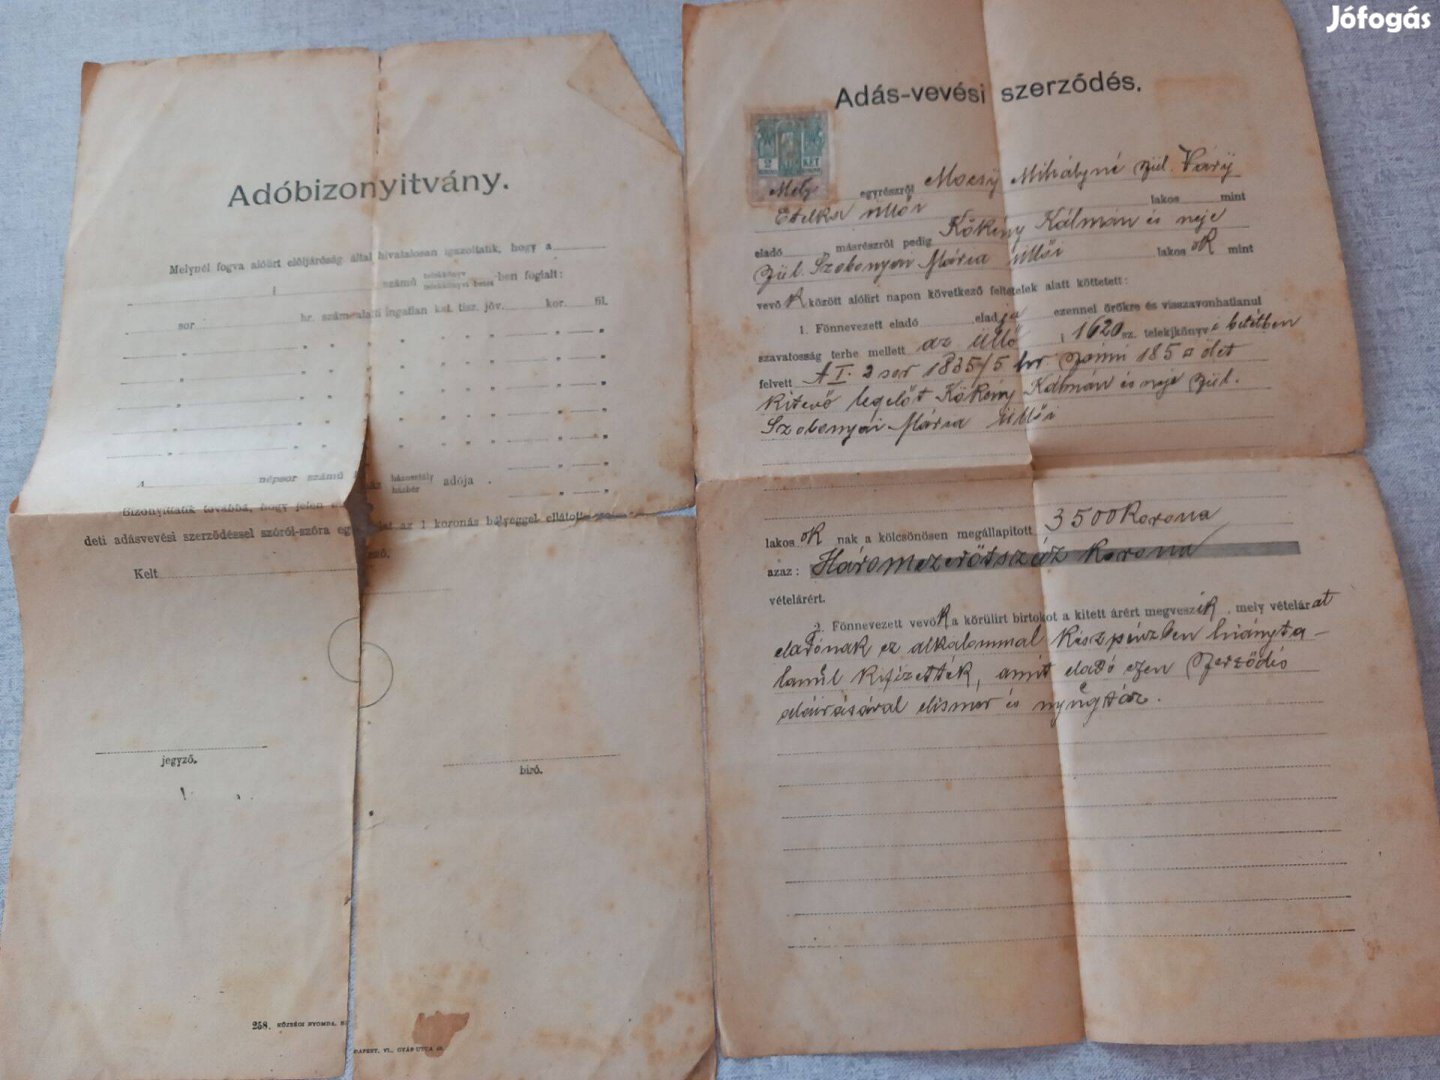 Jófogás
Adóbizonyitvány.
Melynél fogva alóirt elöljáróság által hivatalosan igazoltatik, hogy a
i számú telekkönyv telekkönyvi betét -ben foglalt:
sor hr. szám alatti ingatlan kat. tiszt. jöv. kor. fil.
A népsor számú ház házosztály házbér adója
Bizonyittatik továbbá, hogy jelen
deti adásvevési szerződéssel szóról-szóra az 1 koronás bélyeggel ellátott
Kelt
jegyző.
biró.
258. KÖZSÉGI NYOMDA,
VI., GYÁR-UTCA
Adás-vevési szerződés.
2 KÉT
Mely egyrészről Mocsy Mihályné szül. Váry
Etelka üllői lakos mint
eladó másrészről pedig Kökény Kálmán és neje
szül. Szobonyai Mária üllői lakos ok mint
vevő k között alólirt napon következő feltételek alatt köttetett:
1. Fönnevezett eladó eladja ezennel örökre és visszavonhatlanul
szavatosság terhe mellett az üllői 1620 sz. telekjkönyvi betétben
felvett A I. 2 sor 1835/5 hr számú 185 □ ölet
kitevő legelőt Kökény Kálmán és neje szül.
Szobonyai Mária üllői
lakos ok nak a kölcsönösen megállapított 3500 Korona
azaz: Háromezerötszáz Korona
vételárért.
2. Fönnevezett vevő k a körülirt birtokot a kitett árért megveszik, mely vételárat
eladónak ez alkalommal készpénzben hiányta-
lanúl kifizették, amit eladó ezen szerződés
aláirásával elismer és nyúgtáz.